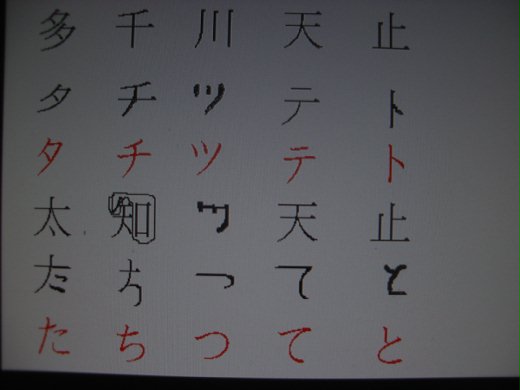 多 千 川 天 止
タ チ ツ テ ト
タ チ ツ テ ト
太 知 天 止
た ち つ て と
た ち つ て と